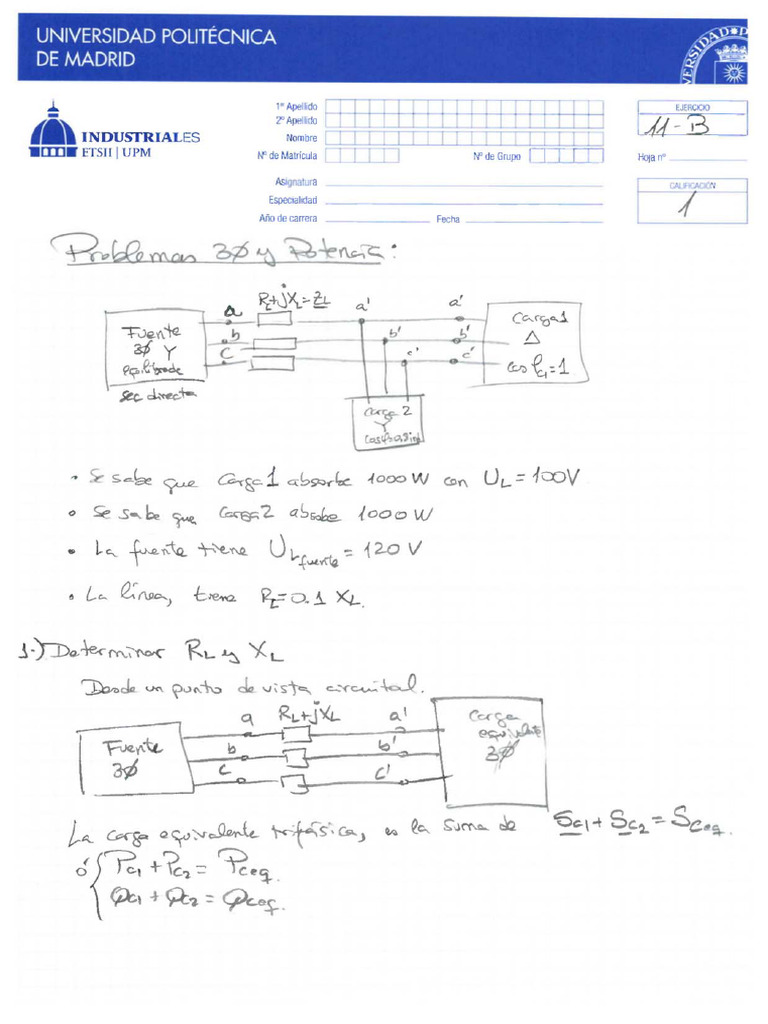 UNIVERSIDAD POLITÉCNICA
DE MADRID
INDUSTRIALES
ETSII | UPM
1º Apellido
2º Apellido
Nombre
Nº de Matrícula
Nº de Grupo
Asignatura
Especialidad
Año de carrera
Fecha
EJERCICIO
11-B
Hoja nº
CALIFICACIÓN
1
Problemas 3Ø y Potencia:
Fuente
3Ø Y
equilibrada
sec directa
a
b
c
R_L+jX_L=Z_L
a'
b'
c'
a'
b'
c'
Carga 1
Δ
cos φ_C1=1
Carga 2
Y
• Se sabe que Carga 1 absorbe 1000 W con U_L = 100V
• Se sabe que Carga 2 absorbe 1000 W
• La fuente tiene U_L fuente = 120 V
• La línea, tiene R_L=0.1 X_L.
1-) Determinar R_L y X_L
Desde un punto de vista circuital.
Fuente
3Ø
a
b
c
R_L+jX_L
a'
b'
c'
Carga
equivalente
3Ø
La carga equivalente trifásica, es la suma de S_C1 + S_C2 = S_Ceq.
ó { P_C1 + P_C2 = P_Ceq.
Q_C1 + Q_C2 = Q_Ceq.